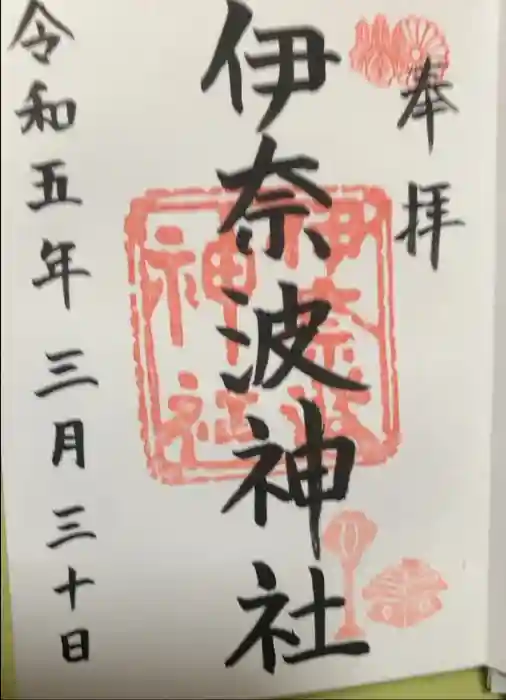 奉拝
伊奈波神社
伊奈波
神社
令和五年三月三十日